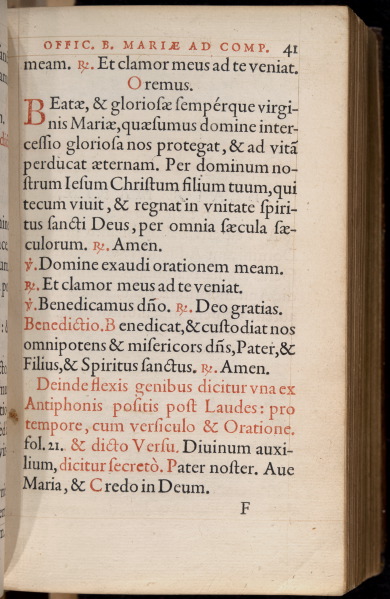 OFFIC. B. MARIÆ AD COMP. 41
meam. ℟. Et clamor meus ad te veniat.
Oremus.
BEatæ, & gloriosæ sempérque virgi-
nis Mariæ, quæsumus domine inter-
cessio gloriosa nos protegat, & ad vitã
perducat æternam. Per dominum no-
strum Iesum Christum filium tuum, qui
tecum viuit, & regnat in vnitate spiri-
tus sancti Deus, per omnia sæcula sæ-
culorum. ℟. Amen.
℣. Domine exaudi orationem meam.
℟. Et clamor meus ad te veniat.
℣. Benedicamus dño. ℟. Deo gratias.
Benedictio. Benedicat, & custodiat nos
omnipotens & misericors dñs, Pater, &
Filius, & Spiritus sanctus. ℟. Amen.
Deinde flexis genibus dicitur vna ex
Antiphonis positis post Laudes: pro
tempore, cum versiculo & Oratione.
fol. 21. & dicto Versu. Diuinum auxi-
lium, dicitur secretò. Pater noster. Aue
Maria, & Credo in Deum.
F